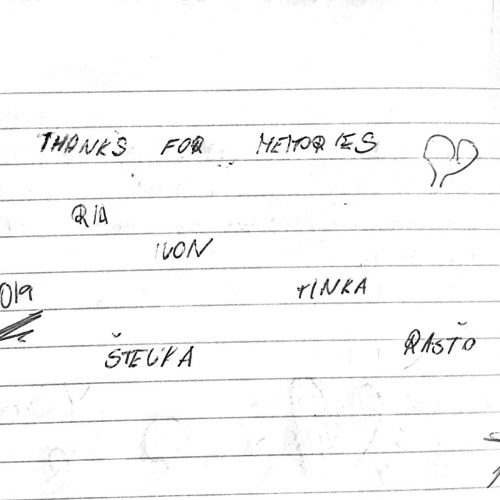 THANKS FOR MEMORIES
RIA
IVON
TINKA
019
ŠTEVKA
RASŤO